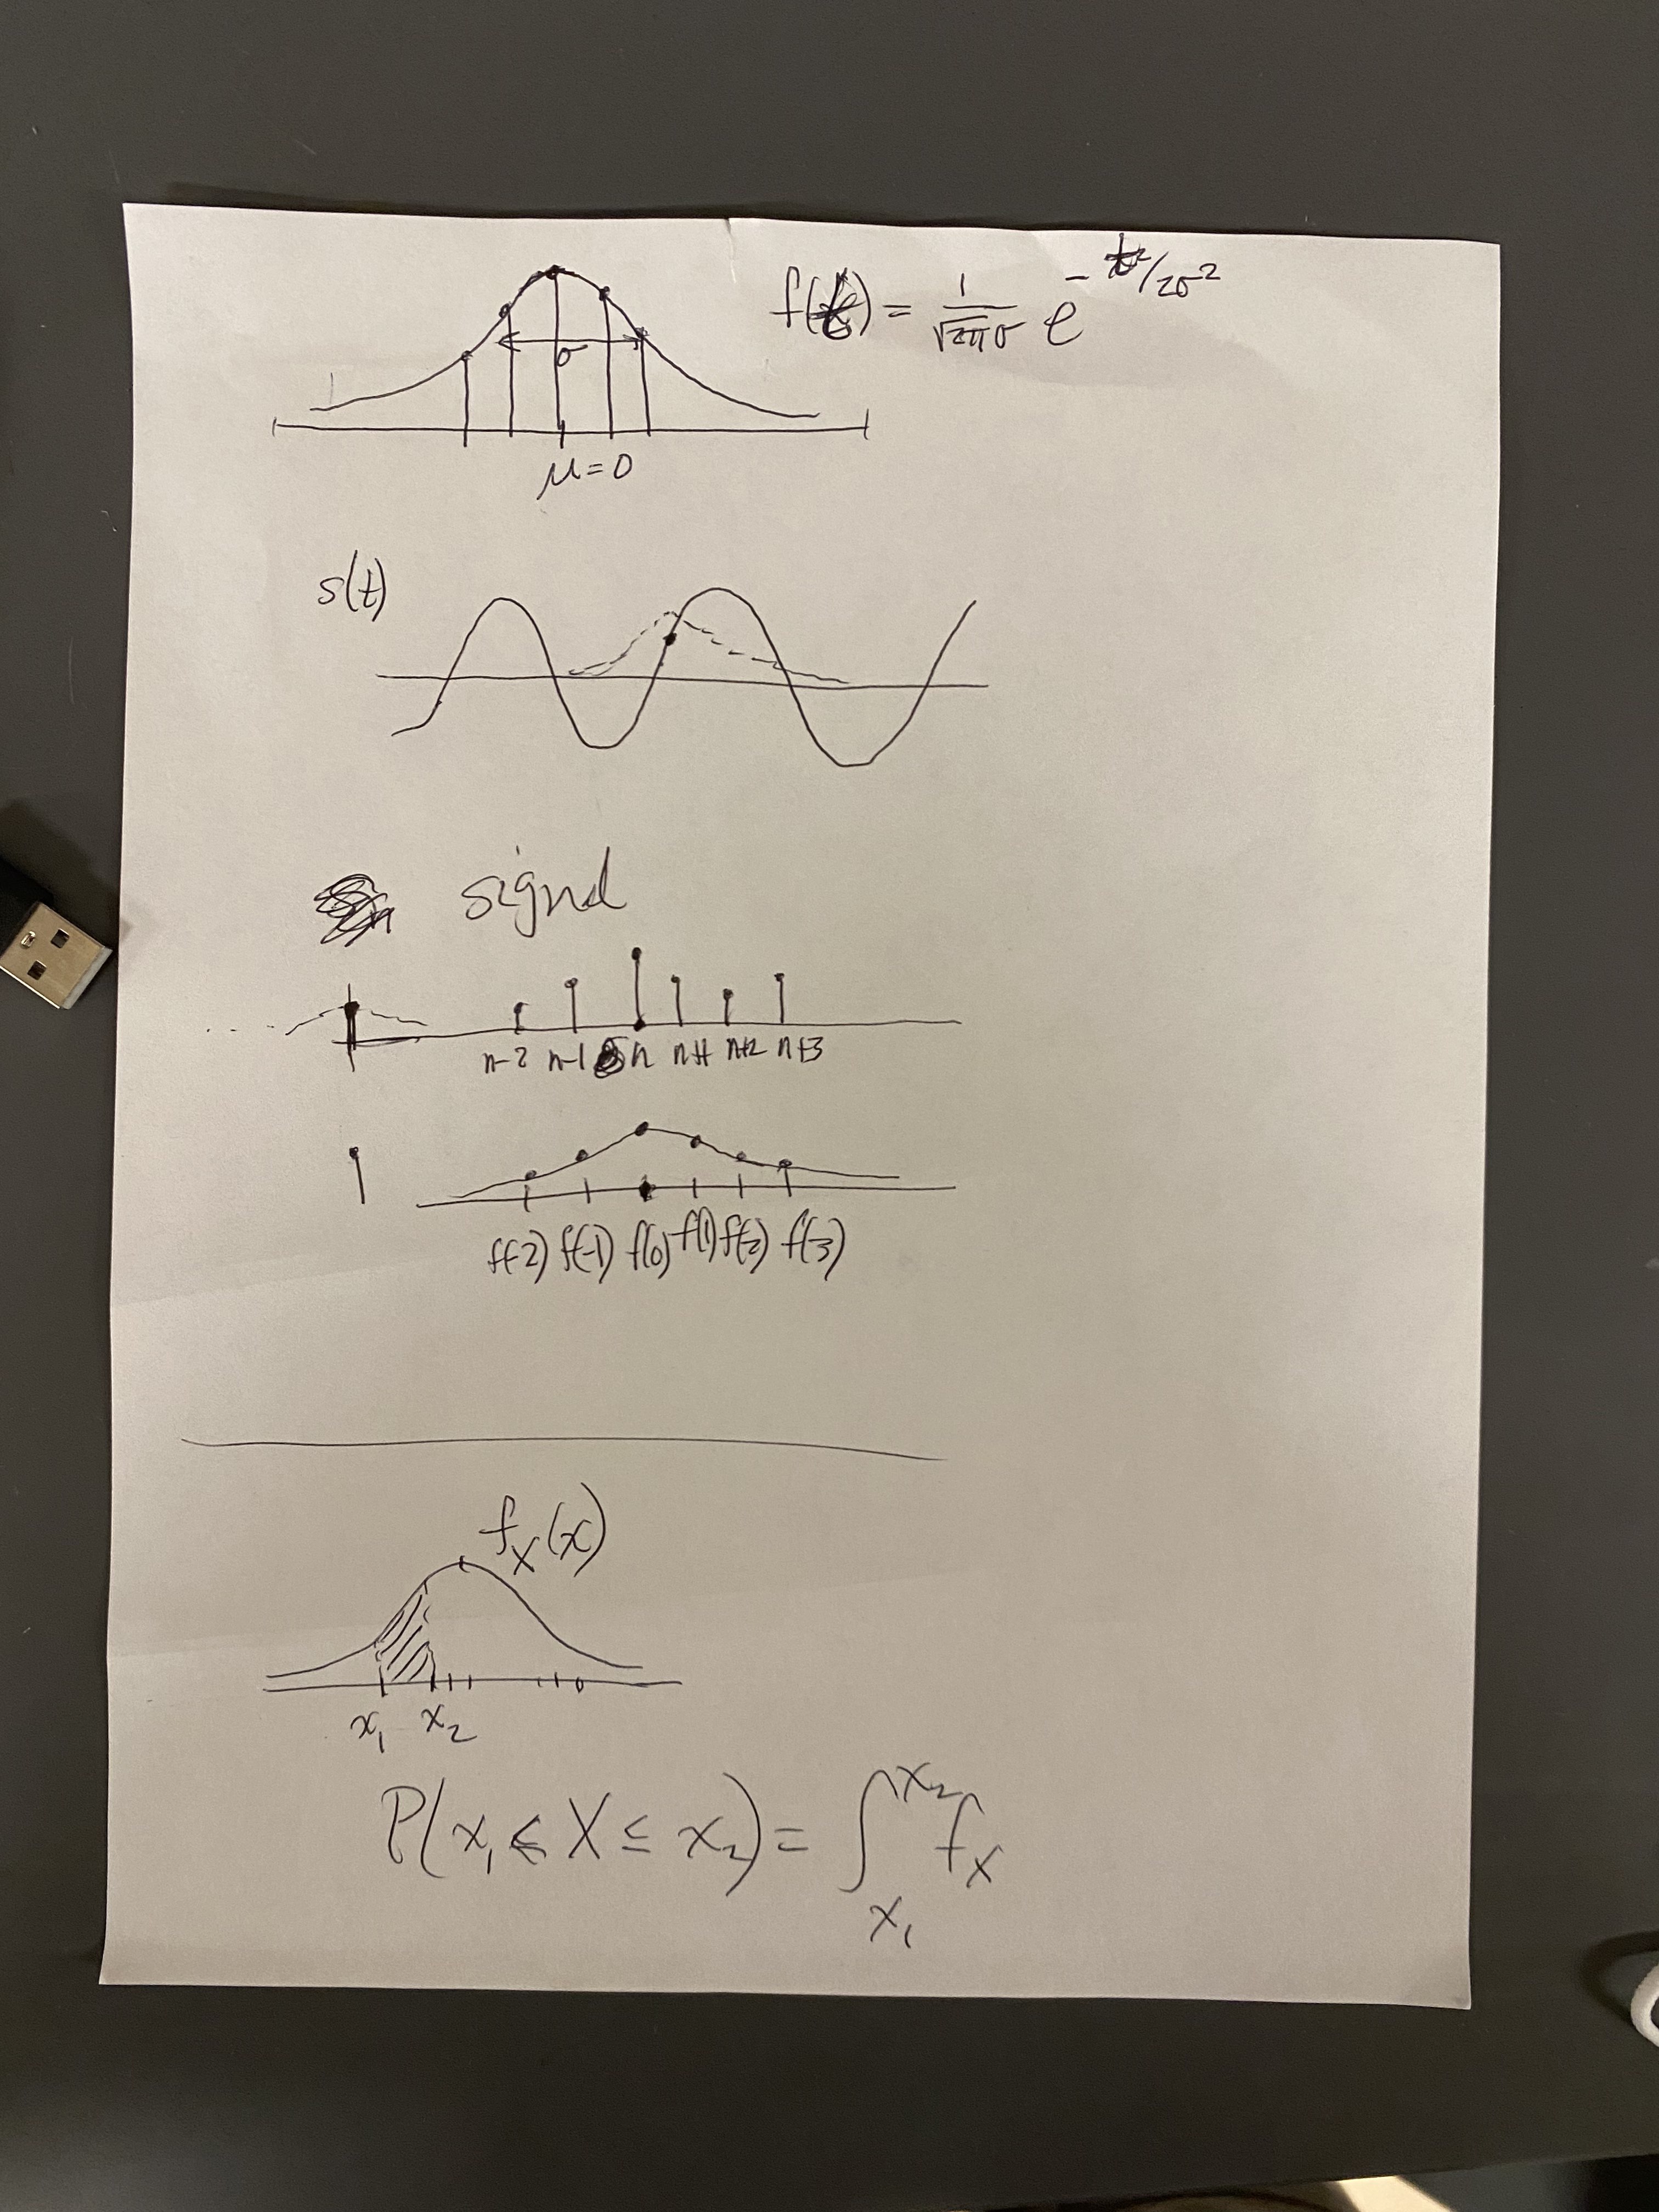 f(t) = 1/√2πσ e^-t²/2σ²
σ
μ=0
s(t)
signal
n-2 n-1 n n+1 n+2 n+3
f(-2) f(-1) f(0) f(1) f(2) f(3)
f_X(x)
x₁ x₂
P(x₁ ≤ X ≤ x₂) = ∫_x₁^x₂ f_X